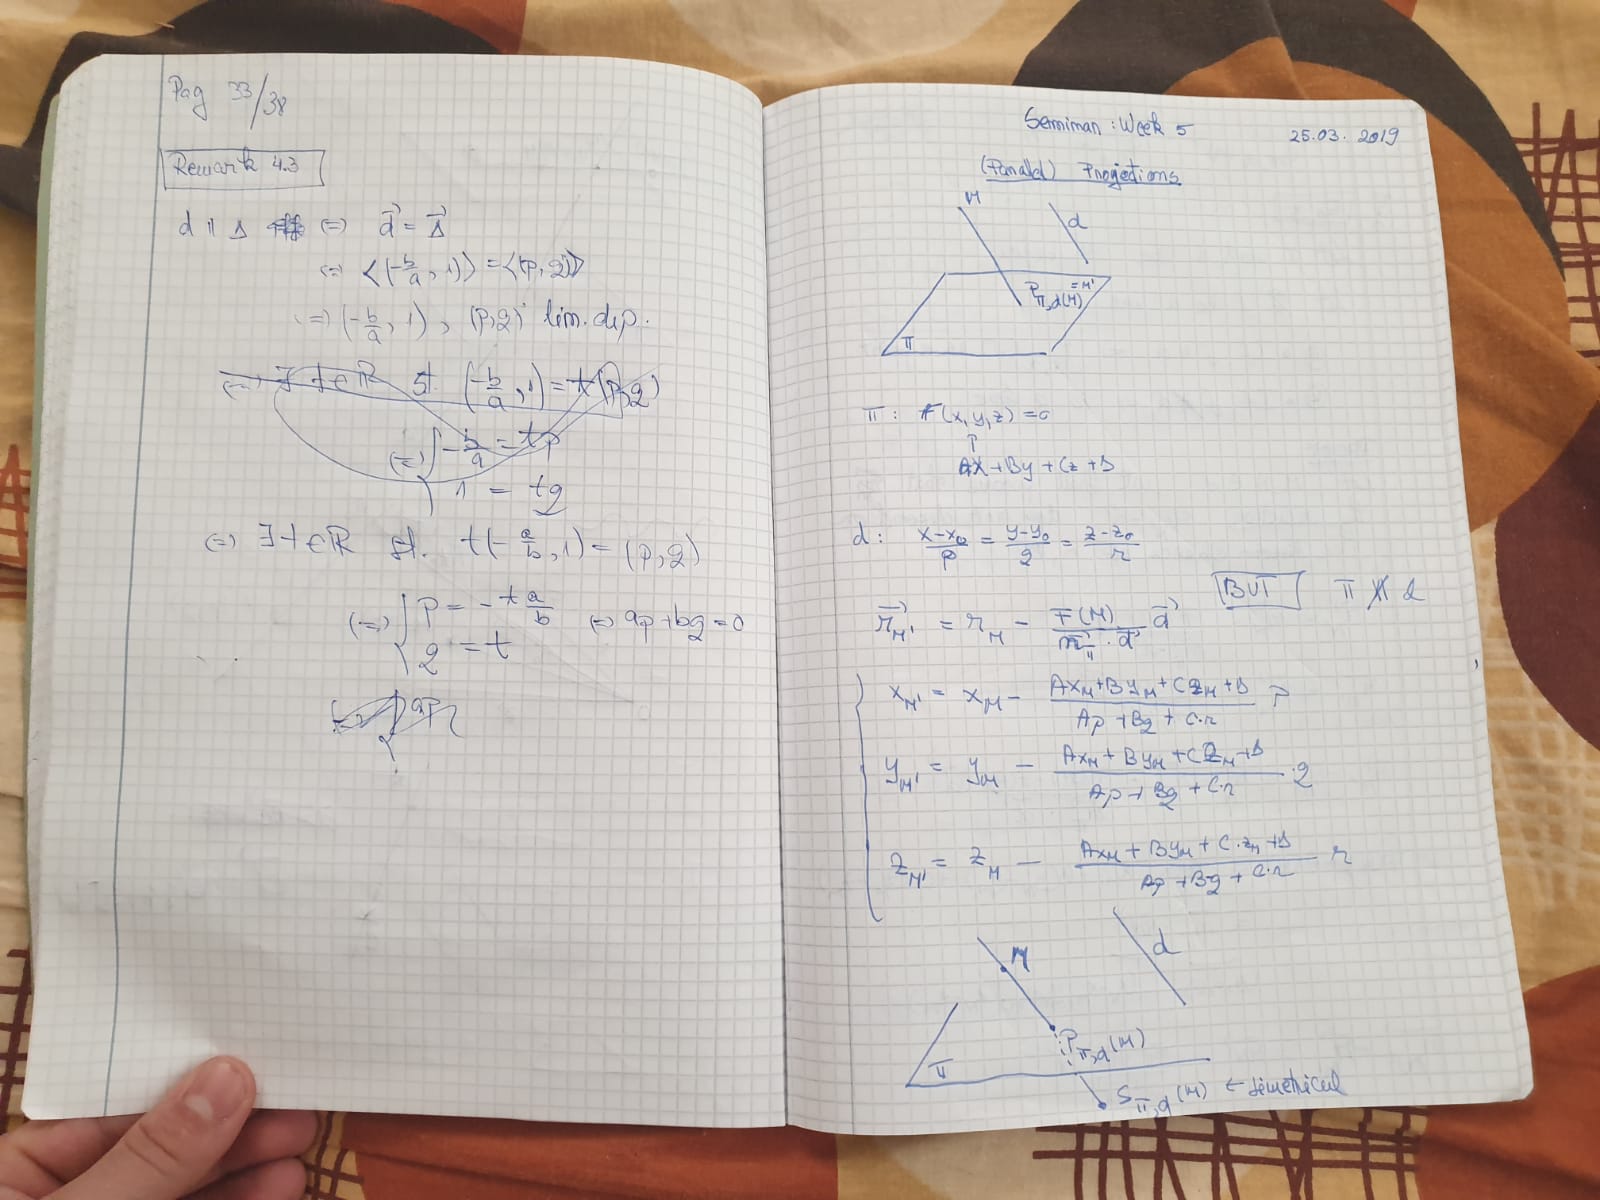 Pag 33/38
Remark 4.3
d ∥ Δ ⟺ d⃗ = Δ⃗
⟺ ⟨(-b/a, 1)⟩ = ⟨(p,q)⟩
⟺ (-b/a, 1), (p,q) lin. dep.
(⟺) ∃ t∈ℝ st. (-b/a, 1) = t(p,q)
(⟺) { -b/a = tp
1 = tq
(⟺) ∃ t∈ℝ st. t(-a/b, 1) = (p,q)
(⟺) { p = -t a/b (⟺) ap+bq=0
q = t
ap
Seminar: Week 5 25.03.2019
(Parallel) Projections
M
d
P π,d(M) =M'
π
π: F(x,y,z)=0
Ax+By+Cz+D
d: (x-x₀)/p = (y-y₀)/q = (z-z₀)/r
BUT π ∦ d
r⃗M' = rM - F(M)/(n⃗π · d⃗) d⃗
xM' = xM - (AxM+ByM+CzM+D)/(Ap+Bq+C·r) p
yM' = yM - (AxM+ByM+CzM+D)/(Ap+Bq+C·r) ·q
zM' = zM - (AxM+ByM+C·zM+D)/(Ap+Bq+C·r) r
d
M
P π,d(M)
π
S π,d(M) ← simetrical